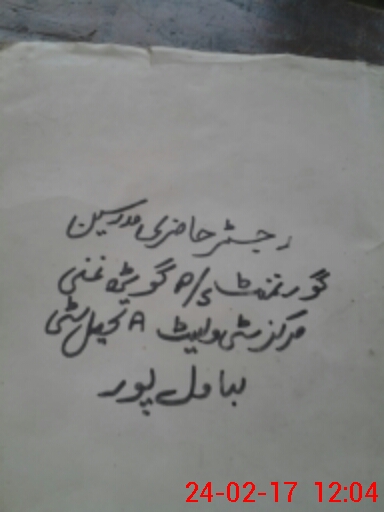 رجسٹر حاضری مدرسین
گورنمنٹ P/S گوپٹھ غنی
مرکز سٹی وایٹ A تحصیل سٹی
بہاولپور
24-02-17 12:04